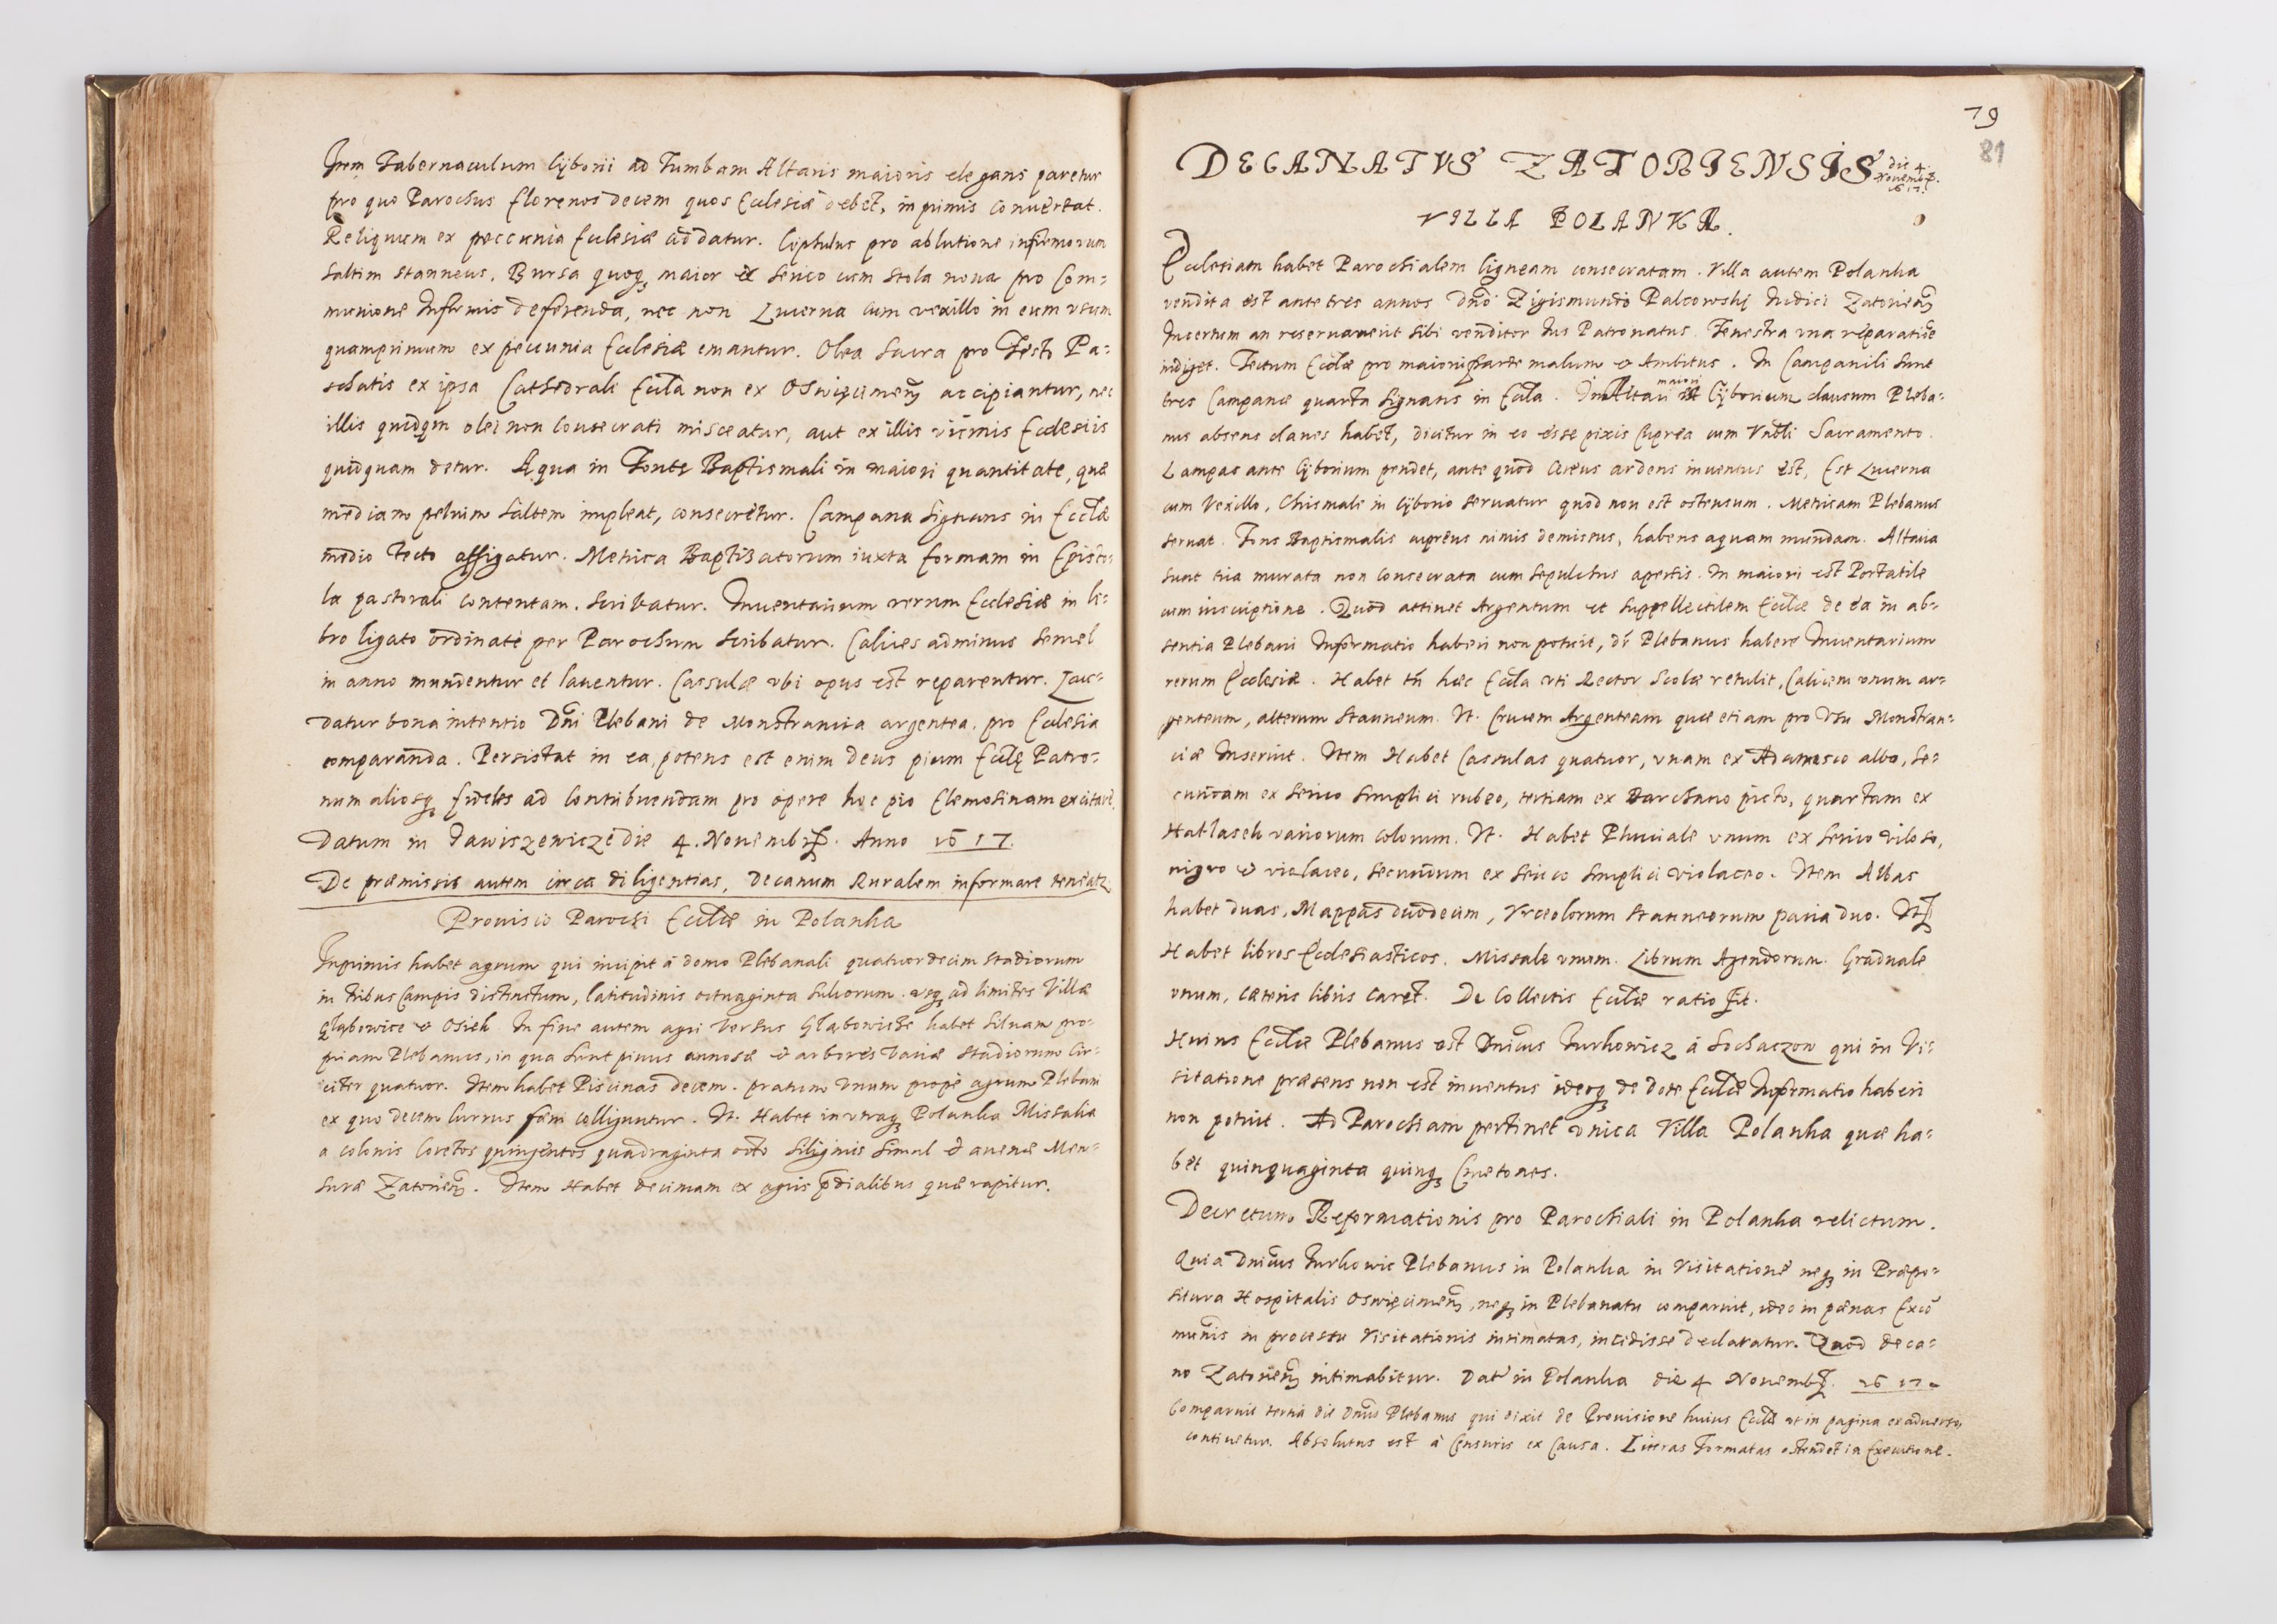 Item Tabernaculum Cyborii ad Tumbam Altaris maioris elegans paretur
pro quo Parochus florenos decem quos Ecclesiæ debet, inprimis convertat.
Reliquum ex peccunia Ecclesiæ addatur. Cyphulus pro ablutione infirmorum
saltim stanneus. Bursa quoq; maior ex serico cum stola nova pro Com=
munione Infirmis deferenda, nec non Lucerna cum vexillo in eum usum
quamprimum ex peccunia Ecclesiæ emantur. Olea sacra pro Festo Pa=
schatis ex ipsa Cathedrali Eccla non ex Oswięcimen̄ accipiantur, nec
illis quidqm olei non consecrati misceatur, aut ex illis vicinis Ecclesiis
quidquam detur. Aqua in Fonte Baptismali in maiori quantitate, quæ
mediam pelvim saltem impleat, consecretur. Campana signans in Ecclæ
medio tecto affigatur. Metrica Baptizatorum iuxta formam in Episto=
la pastorali contentam. scribatur. Inventarium rerum Ecclesiæ in li=
bro ligato ordinatè per Parochum scribatur. Calices adminus semel
in anno mundentur et laventur. Cassulæ ubi opus est reparentur. Lau=
datur bona intentio Dni Plebani de Monstrancia argentea. pro Ecclesia
comparanda. Persistat in ea, potens est enim Deus pium Ecclę Patro=
num aliosq; fideles ad contribuendam pro opere hoc pio Elemosinam excitare.
Datum in die 4. Novembr. Anno 1617.
De præmissis autem circa diligentias, Decanum Ruralem informare teneatr
Provisio Parochi Ecclæ in Polanka
Inprimis habet agrum qui incipit à domo Plebanali quatuordecim stadiorum
in tribus Campis distinctum, latitudinis octuaginta sulcorum. usq; ad limites Villæ
Głębowice et Osiek. In fine autem agri versus Głębowicze habet silvam pro=
priam Plebanus, in qua sunt pinus annosæ et arbores variæ stadiorum cir=
citer quatuor. Item habet Piscinas decem. pratum unum propè agrum Plebani
ex quo decem currus fæni colliguntur. It. Habet in utraq; Polanka Missalia
a colonis Coretos quingentos quadraginta octo siliginis simul et avenæ Men=
suræ Zatorien̄. Item Habet decimam ex agris prædialibus quæ rapitur.
79
81
DECANATVS ZATORIENSIS die 4.
Novembr.
1617.
VILLA POLANKA.
Ecclesiam habet Parochialem ligneam consecratam. Villa autem Polanka
vendita est ante tres annos Dno Zigismundo Palcowskj Iudici Zatorien̄
Incertum an reservaverit sibi venditor Ius Patronatus. Fenestra una reparatione
indiget. Tectum Ecclæ pro maiori parte malum et Ambitus. In Campanili sunt
tres Campanæ quarta signans in Eccla. In Altari maiori Cyborium clausum Pleba=
nus absens claves habet, dicitur in eo esse pixis Cuprea cum Vnbli Sacramento.
Lampas ante Cyborium pendet, ante quod Cereus ardens inventus est, Est Lucerna
cum Vexillo, Chrismale in Cyborio servatur quod non est ostensum. Metricam Plebanus
servat. Fons Baptismalis cupreus nimis demissus, habens aquam mundam. Altaria
sunt tria murata non consecrata cum sepulchris apertis. In maiori est Portatile
cum inscriptione. Quod attinet Argentum et suppellectilem Ecclæ de ea in ab=
sentia Plebani Informatio haberi non potuit, dr Plebanus habere Inventarium
rerum Ecclesiæ. Habet tn̄ hæc Eccla uti Rector Scolæ retulit, Calicem unum ar=
genteum, alterum stanneum. It. Crucem Argenteam quæ etiam pro Usu Monstran=
ciæ Inservit. Item Habet Cassulas quatuor, unam ex Adamasco albo, se=
cundam ex serico simplici rubeo, tertiam ex Barchano picto, quartam ex
Hatlasek variorum colorum. It. Habet Pluviale unum ex serico viloso,
nigro et violaceo, secundum ex serico simplici violaceo. Item Albas
habet duas, Mappas duodecim, Vrceolorum stanneorum paria duo. It
Habet libros Ecclesiasticos. Missale unum. Librum Agendorum. Graduale
unum, cæteris libris caret. De Collectis Ecclæ ratio fit.
Huius Ecclæ Plebanus est Dnicus Turkowicz à Sochaczow qui in Vi=
sitatione præsens non est inventus ideoq; de dote Ecclæ Informatio haberi
non potuit. Ad Parochiam pertinet unica Villa Polanka quæ ha=
bet quinquaginta quinq; Cmetones.
Decretum Reformationis pro Parochiali in Polanka relictum.
Quia Dnicus Turkowic Plebanus in Polanka in Visitatione neq; in Præpo=
situra Hospitalis Oswięcimen̄, neq; in Plebanatu comparuit, ideo in pœnas Exco
munis in processu Visitationis intimatas, incidisse declaratur. Quod deca=
no Zatorien̄ intimabitur. Dat in Polanka die 4 Novembr. 1617.
Comparuit tertia die Dnus Plebanus qui dixit de Provisione huius Ecclæ ut in pagina exadverso
continetur. Absolutus est à Censuris ex Causa. Literas Formatas ostendet in Executione.